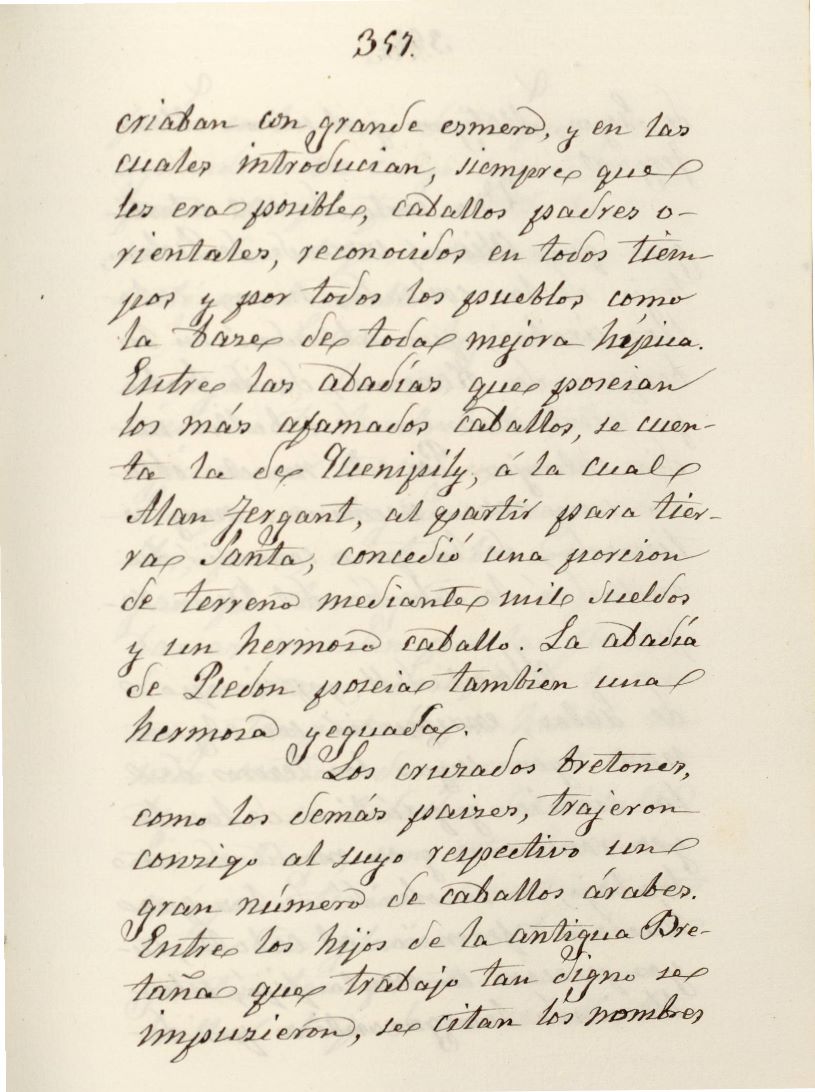 357.
criaban con grande esmero, y en las
cuales introducian, siempre que
les era posible, caballos padres o-
rientales, reconocidos en todos tiem-
pos y por todos los pueblos como
la base de toda mejora hípica.
Entre las abadías que poseian
los más afamados caballos, se cuen-
ta la de Quenipily, á la cual
Alan Fergant, al partir para tier-
ra Santa, concedió una porcion
de terreno mediante mil sueldos
y un hermoso caballo. La abadía
de Redon poseia tambien una
hermosa yeguada.
Los cruzados bretones,
como los demás paises, trajeron
consigo al suyo respectivo un
gran número de caballos árabes.
Entre los hijos de la antigua Bre-
taña que trabajo tan digno se
impusieron, se citan los nombres